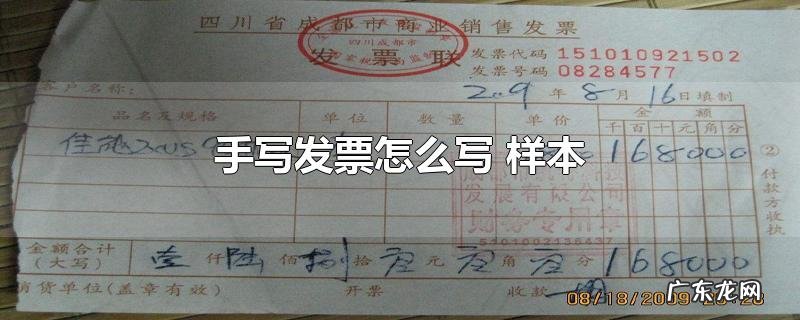 四川省成都市商业销售发票
四川成都市
发票联
发票代码 151010921502
发票号码 08284577
客户名称:
2009年8月16日填制
品名及规格 单位 数量 单价 金额
千百十元角分
佳能
168000
手写发票怎么写 样本
②付款方收执
发展有限公司
财务专用章
5101002136437
金额合计(大写) 壹仟陆佰捌拾零元零角零分 168000
销货单位(盖章有效) 开票 收款
08/18/2009
广东龙网